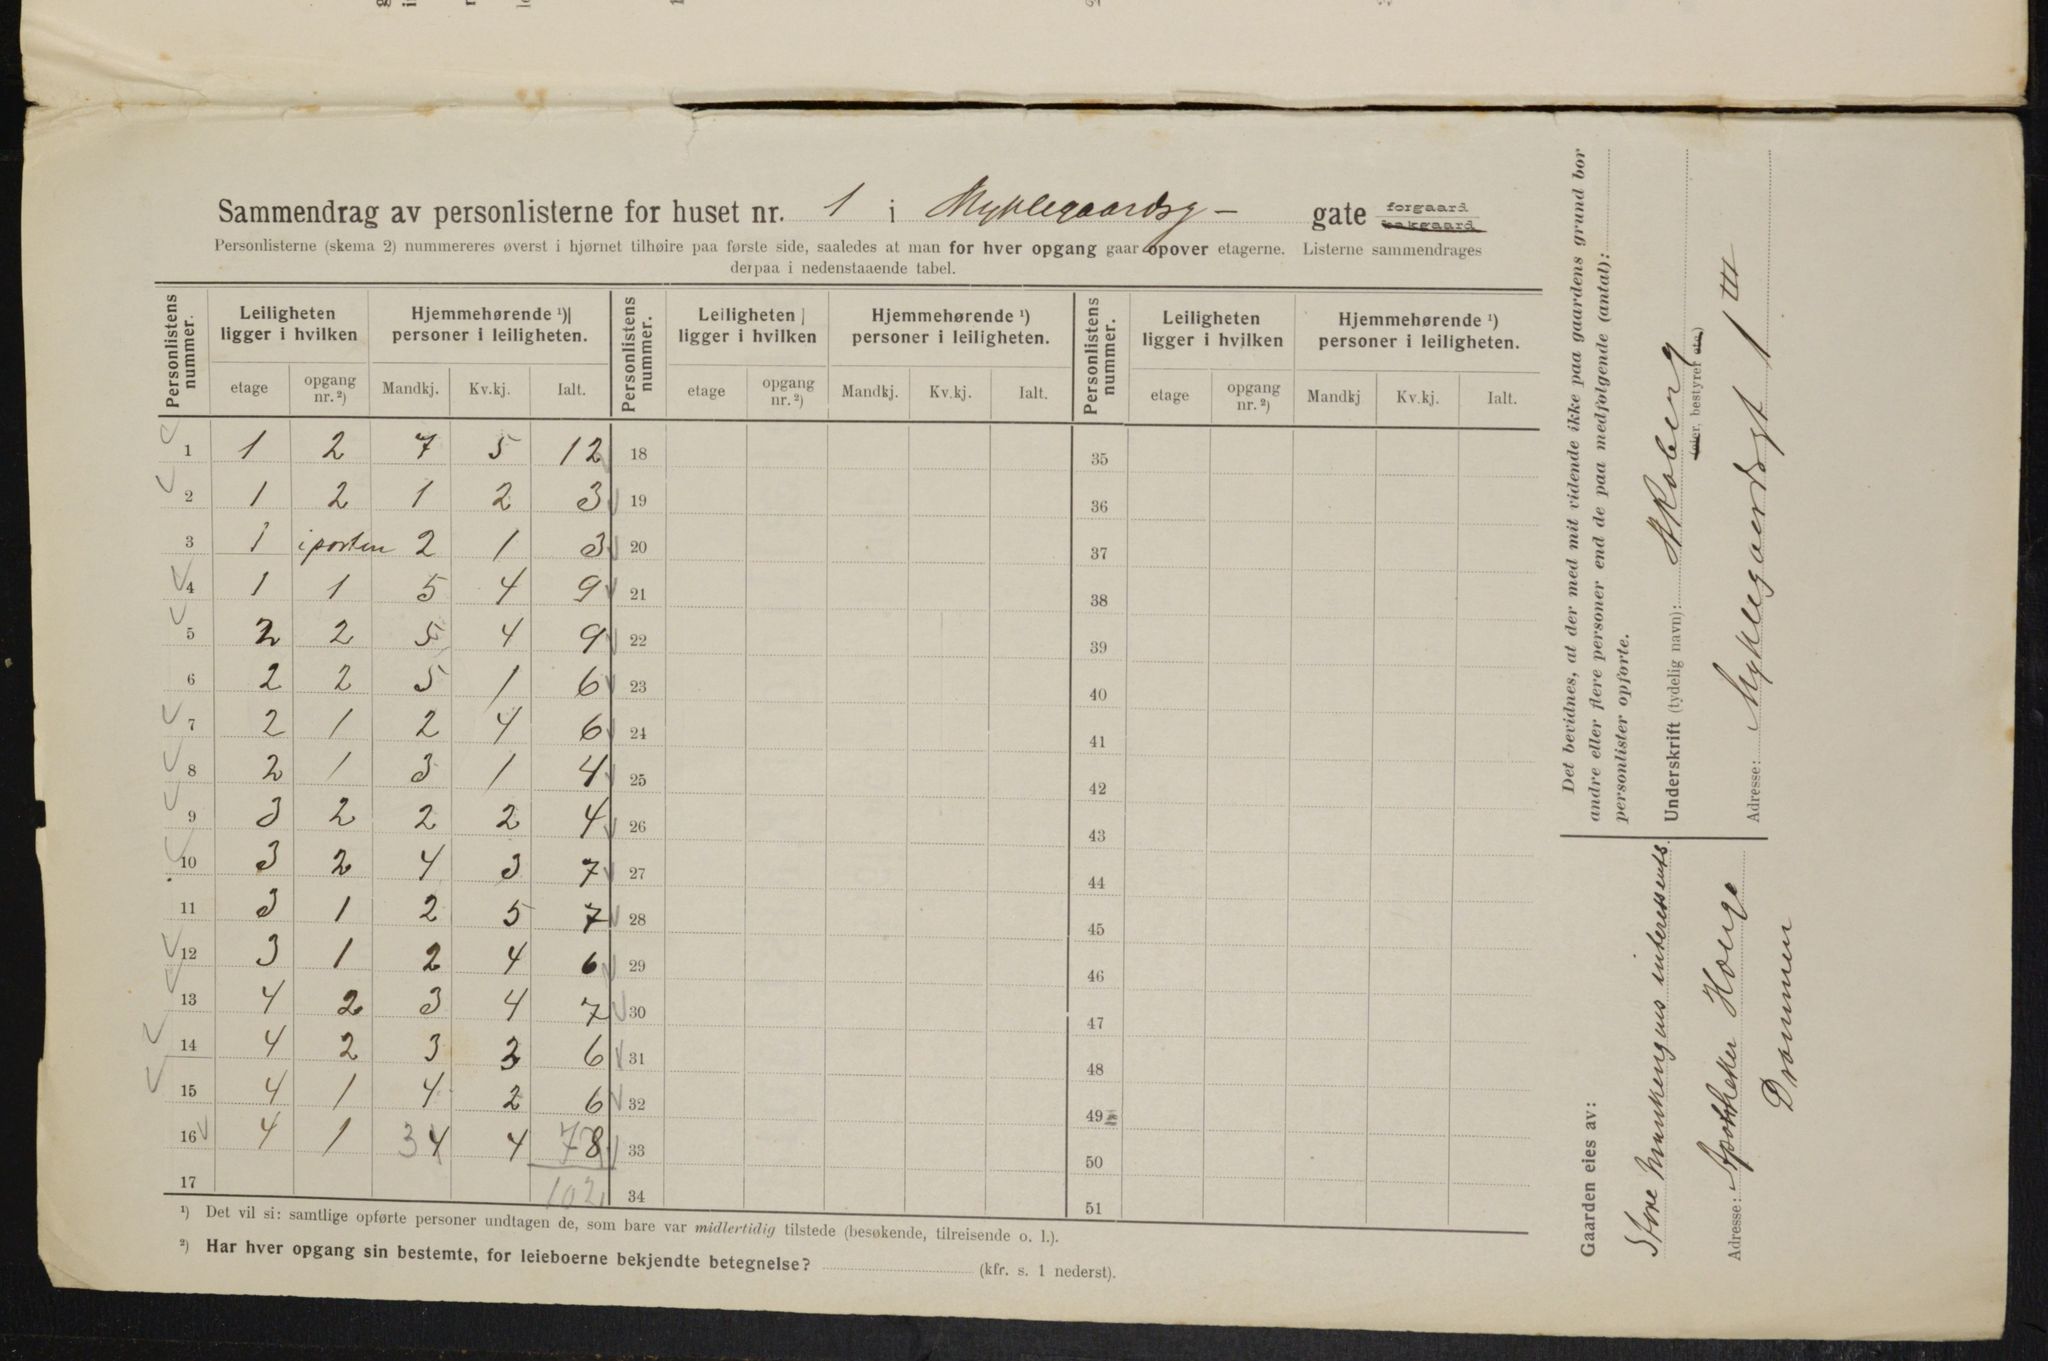 Sammendrag av personlisterne for huset nr. 1 i Myklegaardsg- gate forgaard bakgaard
Personlisterne (skema 2) nummereres øverst i hjørnet tilhøire paa første side, saaledes at man for hver opgang gaar opover etagerne. Listerne sammendrages
derpaa i nedenstaaende tabel.
Personlistens nummer. Leiligheten ligger i hvilken Hjemmehørende ¹) personer i leiligheten. Personlistens nummer. Leiligheten ligger i hvilken Hjemmehørende ¹) personer i leiligheten. Personlistens nummer. Leiligheten ligger i hvilken Hjemmehørende ¹) personer i leiligheten.
etage opgang nr. ²) Mandkj. Kv.kj. Ialt. etage opgang nr. ²) Mandkj. Kv.kj. Ialt. etage opgang nr. ²) Mandkj Kv.kj. Ialt.
1 1 2 7 5 12 18 35
2 1 2 1 2 3 19 36
3 1 i porten 2 1 3 20 37
4 1 1 5 4 9 21 38
5 2 2 5 4 9 22 39
6 2 2 5 1 6 23 40
7 2 1 2 4 6 24 41
8 2 1 3 1 4 25 42
9 3 2 2 2 4 26 43
10 3 2 4 3 7 27 44
11 3 1 2 5 7 28 45
12 3 1 2 4 6 29 46
13 4 2 3 4 7 30 47
14 4 2 3 3 6 31 48
15 4 1 4 2 6 32 49
16 4 1 3 4 4 7 8 33 50
17 102 34 51
¹) Det vil si: samtlige opførte personer undtagen de, som bare var midlertidig tilstede (besøkende, tilreisende o. l.).
²) Har hver opgang sin bestemte, for leieboerne bekjendte betegnelse? (kfr. s. 1 nederst).
Det bevidnes, at der med mit vidende ikke paa gaardens grund bor
andre eller flere personer end de paa medfølgende (antal):
personlister opførte.
Underskrift (tydelig navn): Skoberg
(eier, bestyrer etc.)
Adresse: Myklegaardsgt 1 III
Gaarden eies av:
Store Munkengens interessents.
Adresse: Apotheker Hoerge
Drammen